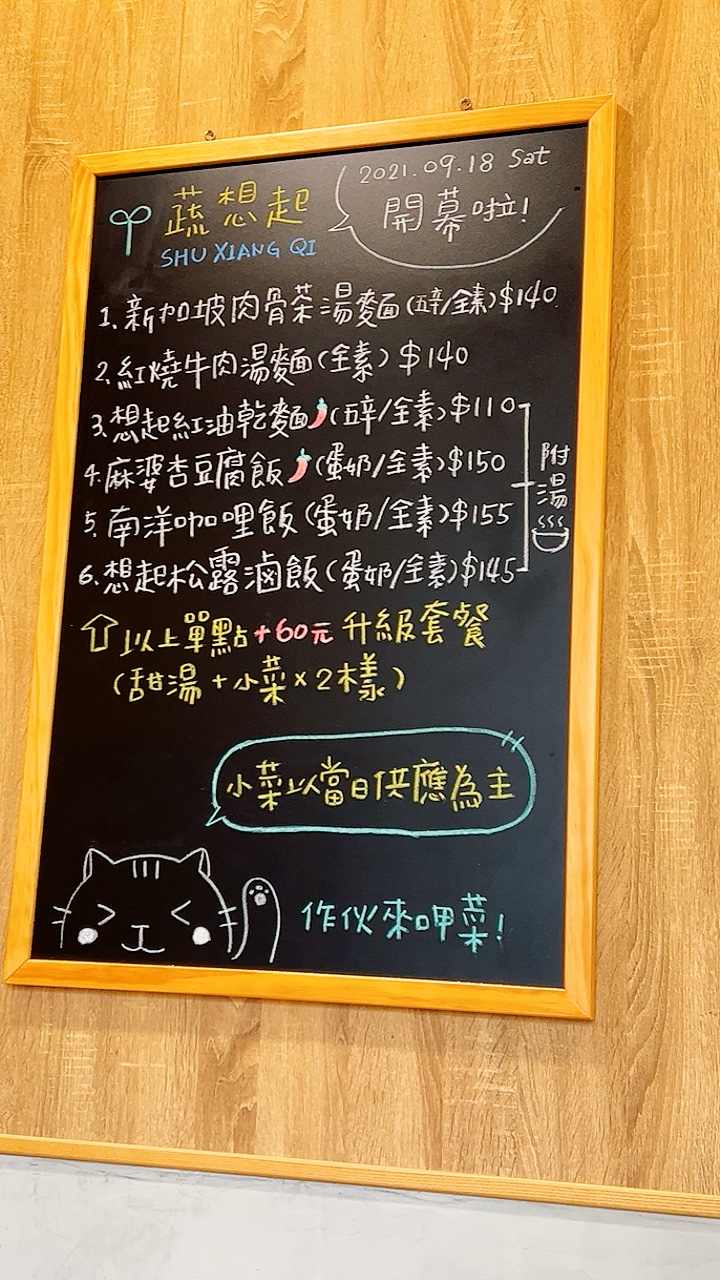 蔬想起
SHU XIANG QI
2021.09.18 Sat
開幕啦!
1.新加坡肉骨茶湯麵(五辛/全素)$140
2.紅燒牛肉湯麵(全素)$140
3.想起紅油乾麵(五辛/全素)$110
4.麻婆杏豆腐飯(蛋奶/全素)$150
5.南洋咖哩飯(蛋奶/全素)$155
6.想起松露滷飯(蛋奶/全素)$145
附湯
以上單點+60元 升級套餐
(甜湯+小菜×2樣)
小菜以當日供應為主
作伙來呷菜!